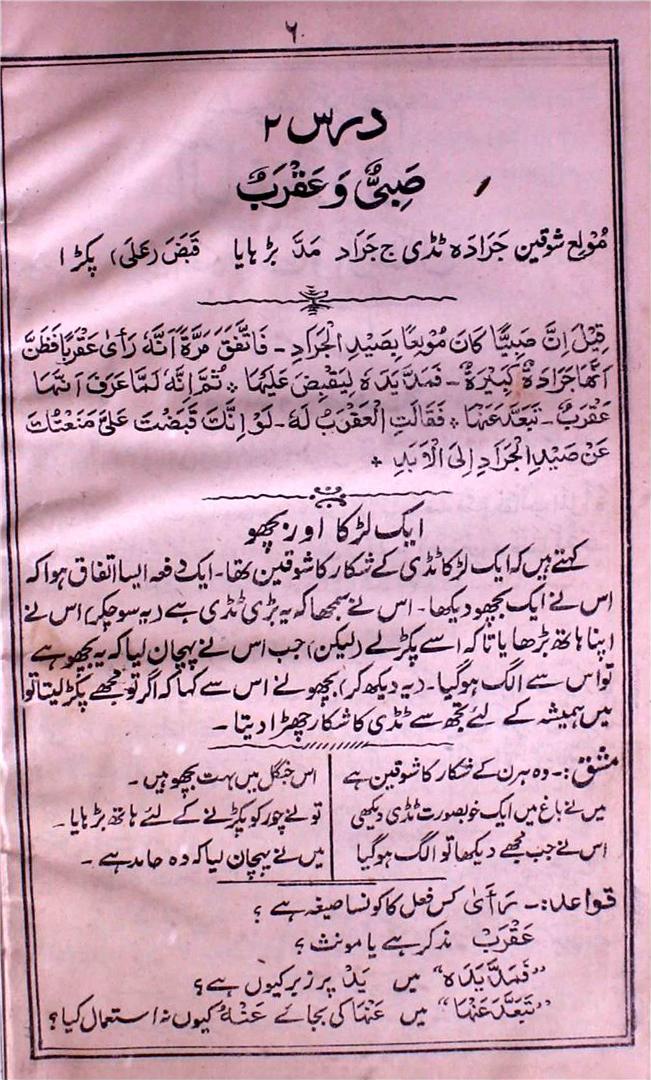 ٦
درس ٢
صَبِیٌّ وَ عَقْرَبٌ
مُوْلِع شوقین جَرَادَہ ٹڈی ج جَرَاد مَدَّ بڑہایا قَبَضَ (عَلٰی) پکڑا
قِیْلَ اِنَّ صَبِیًّا کَانَ مُوْلِعًا بِصَیْدِ الْجَرَادِ - فَاتَّفَقَ مَرَّۃً اَنَّہٗ رَأیٰ عَقْرَبًا فَظَنَّ
اَنَّھَا جَرَادَۃٌ کَبِیْرَۃٌ - فَمَدَّ یَدَہٗ لِیَقْبِضَ عَلَیْھَا ٭ ثُمَّ اِنَّہٗ لَمَّا عَرَفَ اَنَّھَا
عَقْرَبٌ - تَبَعَّدَ عَنْھَا ٭ فَقَالَتِ الْعَقْرَبُ لَہٗ - لَوْ اِنَّکَ قَبَضْتَ عَلَیَّ مَنَعْتُکَ
عَنْ صَیْدِ الْجَرَادِ اِلَی الْاَبَدِ ٭
ایک لڑکا اور بچھو
کہتے ہیں کہ ایک لڑکا ٹڈی کے شکار کا شوقین تھا - ایک دفعہ ایسا اتفاق ہوا کہ
اس نے ایک بچھو دیکھا - اس نے سمجھا کہ یہ بڑی ٹڈی ہے (یہ سوچکر) اس نے
اپنا ہاتھ بڑھایا تا کہ اسے پکڑ لے (لیکن) جب اس نے پہچان لیا کہ یہ بچھو ہے
تو اس سے الگ ہوگیا - (یہ دیکھ کر) بچھو نے اس سے کہا کہ اگر تو مجھے پکڑ لیتا تو
میں ہمیشہ کے لئے تجھ سے ٹڈی کا شکار چھڑا دیتا -
مشق :- وہ ہرن کے شکار کا شوقین ہے اس جنگل میں بہت بچھو ہیں -
میں نے باغ میں ایک خوبصورت ٹڈی دیکھی تو نے چور کو پکڑنے کے لئے ہاتھ بڑہایا -
اس نے جب مجھے دیکھا تو الگ ہوگیا میں نے پہچان لیا کہ وہ حامد ہے -
قواعد :- رَأیٰ کس فعل کا کونسا صیغہ ہے ؟
عَقْرَبٌ مذکر ہے یا مونث ؟
"فَمَدَّ یَدَہٗ" میں یَدَ پر زبر کیوں ہے ؟
"تَبَعَّدَ عَنْھَا" میں عَنْھَا کی بجائے عَنْہُ کیوں نہ استعمال کیا ؟